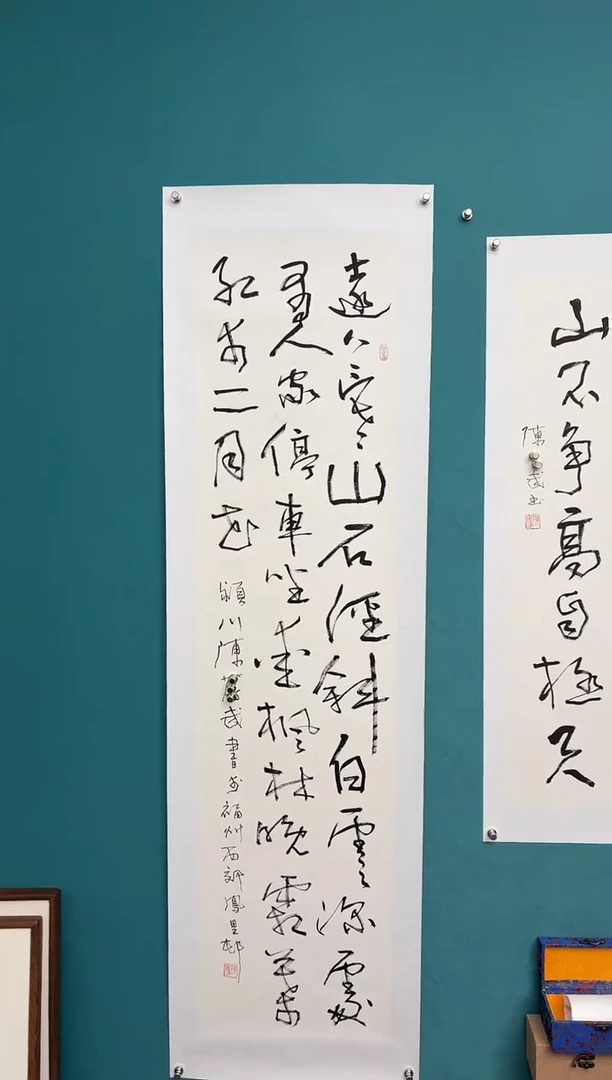 遠上寒山石徑斜白雲深處
有人家停車坐愛楓林晚霜葉
紅於二月花
潁川陳武書於福州西鳳里邨
山不爭高自極天
陳武書